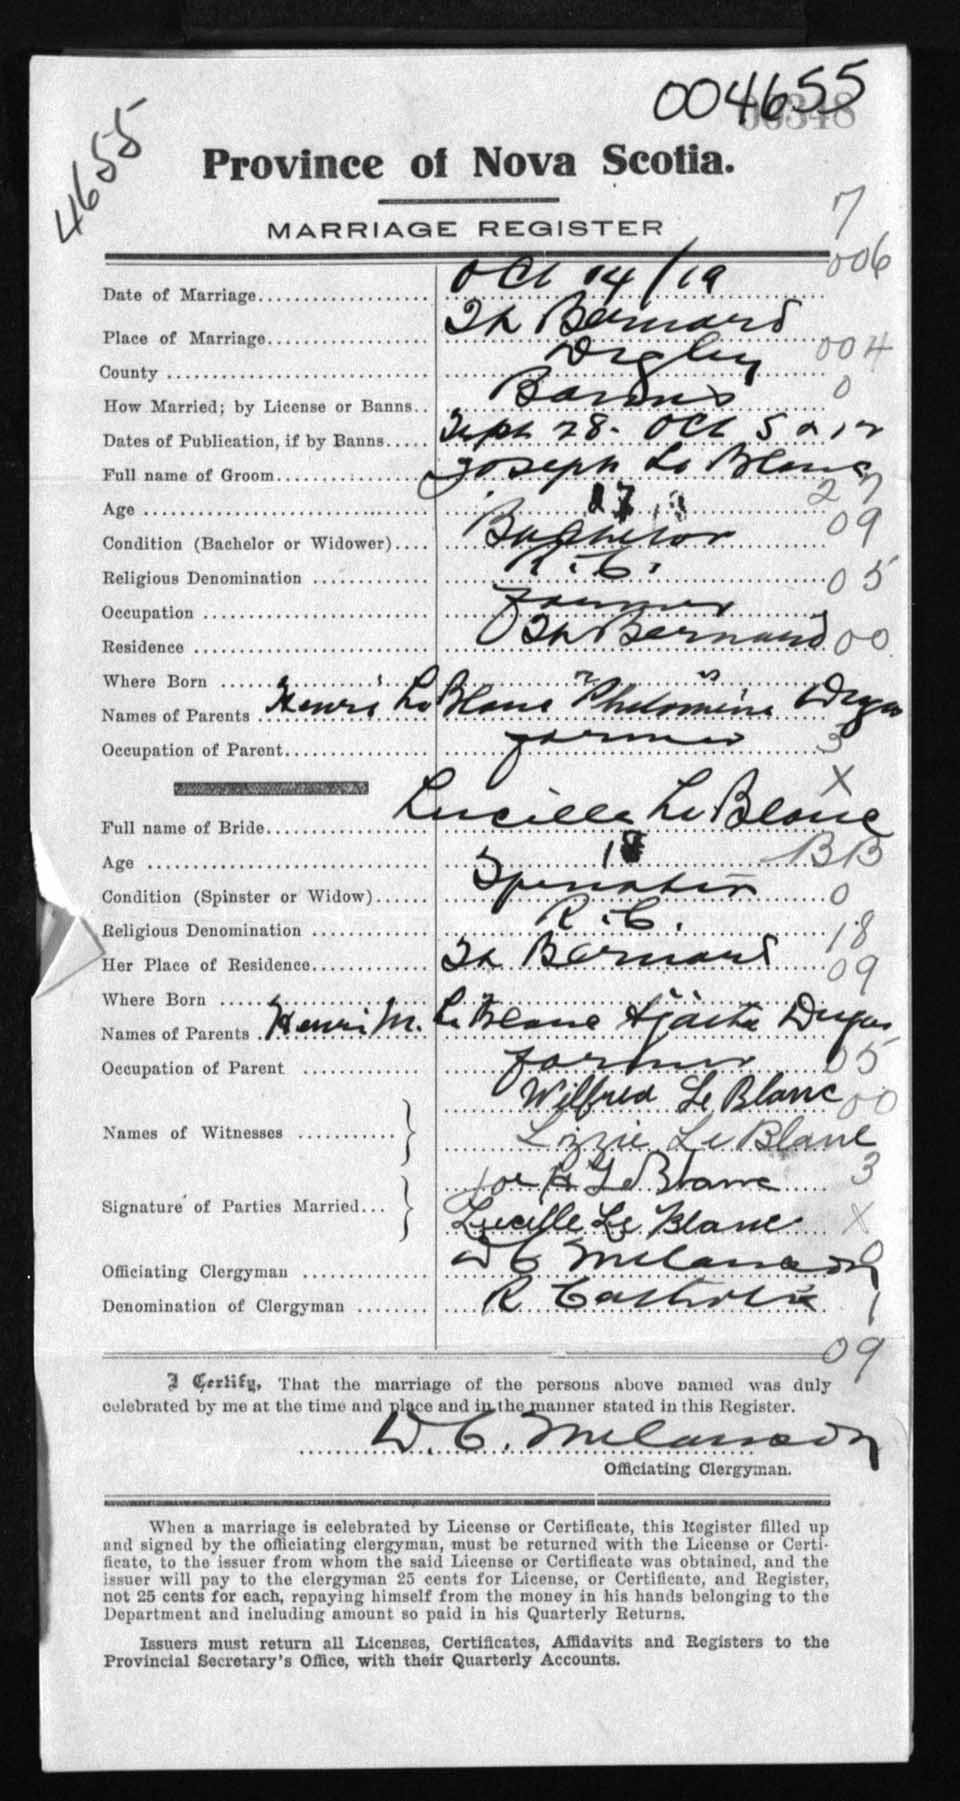 004655
00348
4655
Province of Nova Scotia.
MARRIAGE REGISTER
7
006
Date of Marriage Oct 14/19
Place of Marriage St Bernard
County Digby 004
How Married; by License or Banns Banns 0
Dates of Publication, if by Banns Sept 28. Oct 5 & 12
Full name of Groom Joseph Le Blanc
27
Age 27
Condition (Bachelor or Widower) Bachelor 09
Religious Denomination R.C. 05
Occupation farmer
Residence St Bernard 00
Where Born " "
Names of Parents Henri Le Blanc Philomine Dugas
Occupation of Parent farmer 3
X
Full name of Bride Lucille Le Blanc
Age 18 BB
Condition (Spinster or Widow) Spinster 0
Religious Denomination R.C. 18
Her Place of Residence St Bernard 09
Where Born " "
Names of Parents Henri M. Le Blanc Dugas
Occupation of Parent farmer 05
Names of Witnesses Wilfred Le Blanc 00
Lizzie Le Blanc
Signature of Parties Married Joe H Le Blanc 3
Lucille Le Blanc X
Officiating Clergyman W C Melanson 0
Denomination of Clergyman R Catholic 1
09
I Certify, That the marriage of the persons above named was duly
celebrated by me at the time and place and in the manner stated in this Register.
W. C. Melanson
Officiating Clergyman.
When a marriage is celebrated by License or Certificate, this Register filled up
and signed by the officiating clergyman, must be returned with the License or Certi-
ficate, to the issuer from whom the said License or Certificate was obtained, and the
issuer will pay to the clergyman 25 cents for License, or Certificate, and Register,
not 25 cents for each, repaying himself from the money in his hands belonging to the
Department and including amount so paid in his Quarterly Returns.
Issuers must return all Licenses, Certificates, Affidavits and Registers to the
Provincial Secretary's Office, with their Quarterly Accounts.